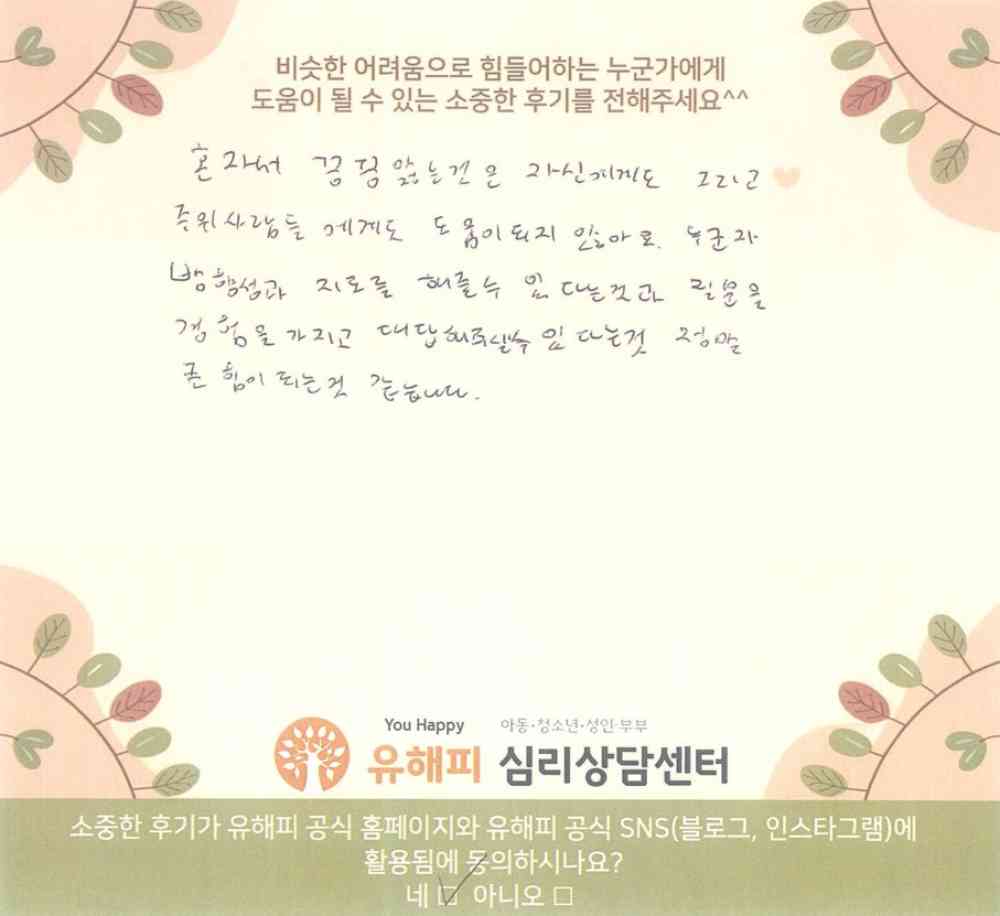 비슷한 어려움으로 힘들어하는 누군가에게
도움이 될 수 있는 소중한 후기를 전해주세요^^
혼자서 끙끙 앓는건은 자신에게도 그리고
주위사람들에게도 도움이되지 않아요. 누군가
방향성과 지도를 해줄수 있다는것과 질문을
경험을 가지고 대답해주실수 있다는것 정말
큰 힘이 되는것 같습니다.
You Happy 아동·청소년·성인·부부
유해피 심리상담센터
소중한 후기가 유해피 공식 홈페이지와 유해피 공식 SNS(블로그, 인스타그램)에
활용됨에 동의하시나요?
네 ☑ 아니오 □